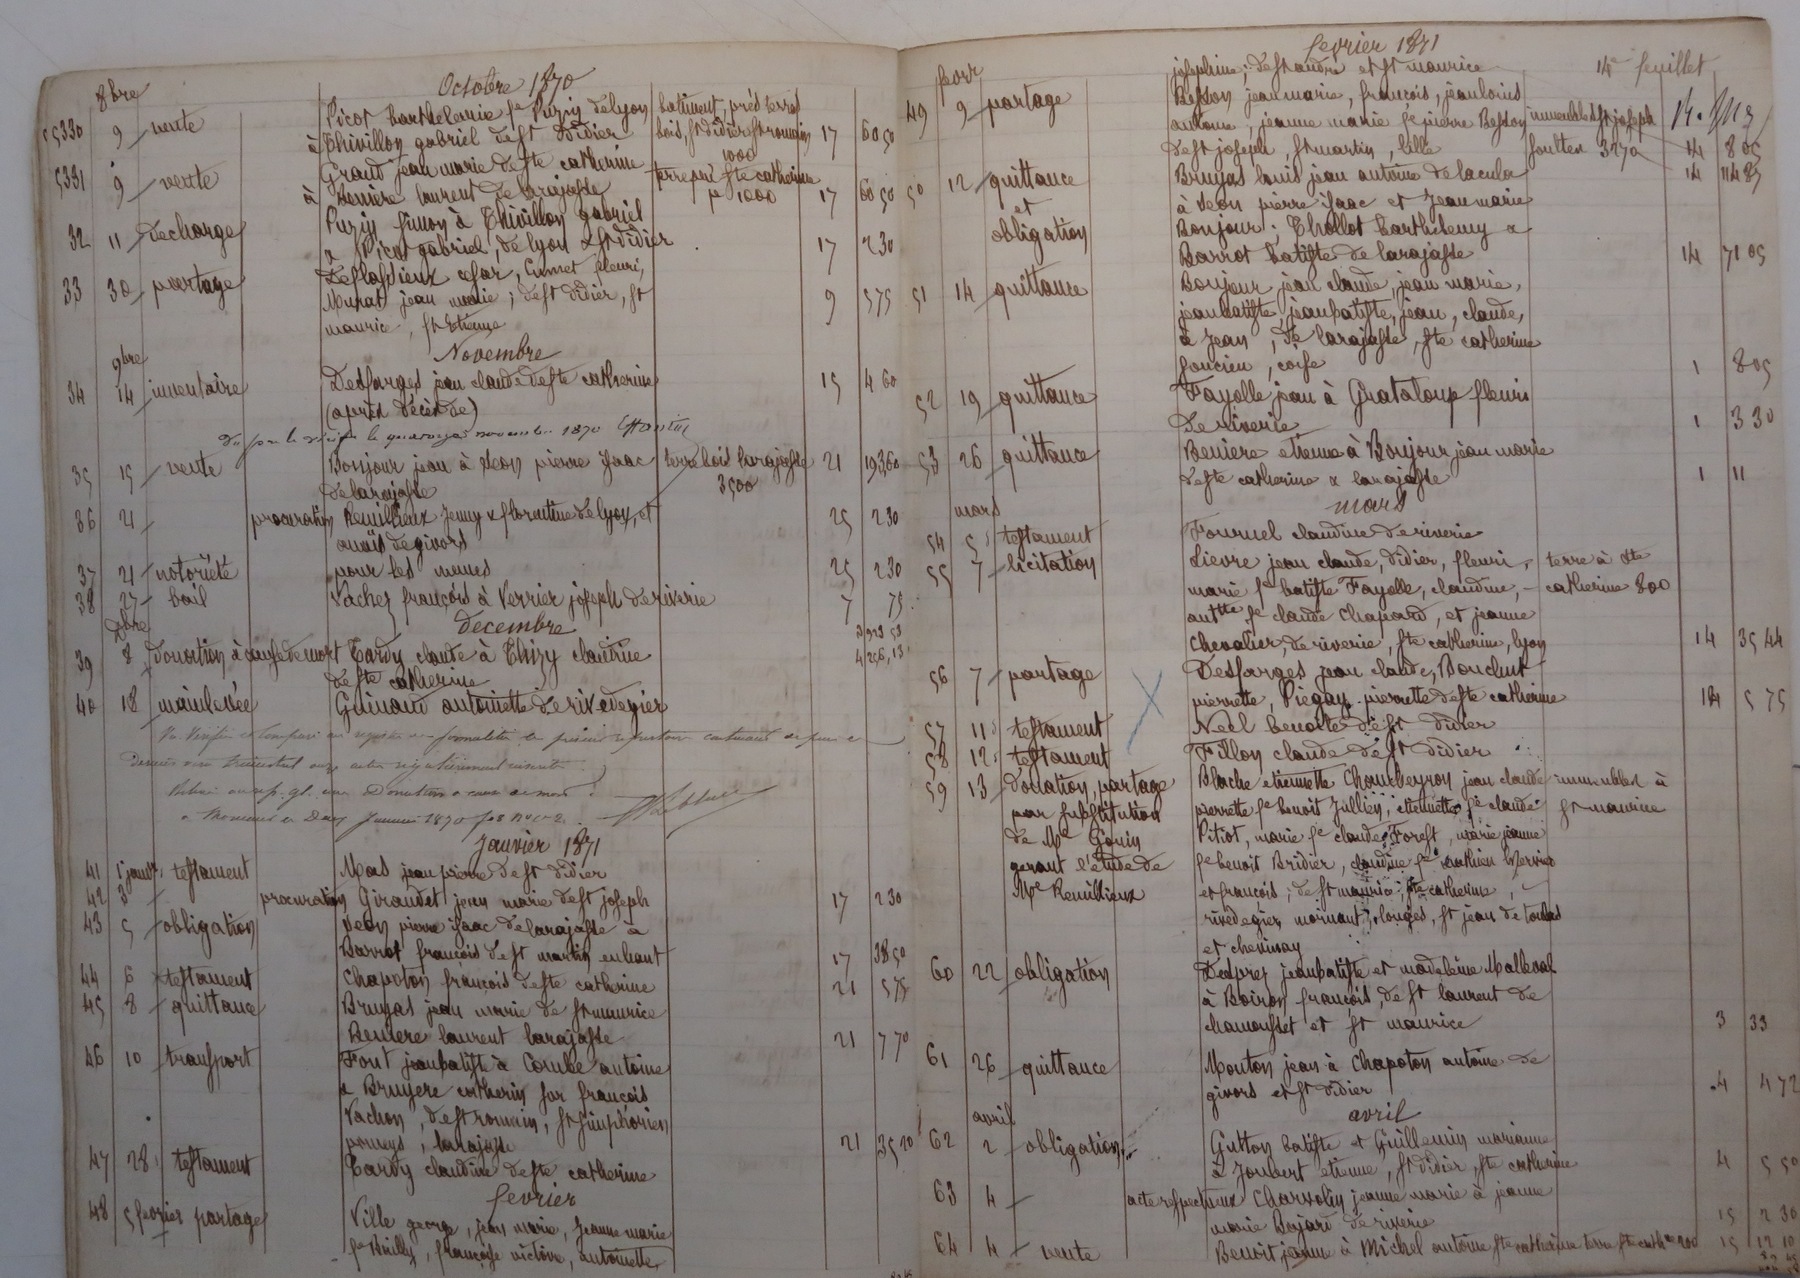 8bre
Octobre 1870
55330 9 vente Picot barthelemie fe Puzin de lyon batiment, prés terres
à Thivillon gabriel de st Didier bois, st didier st romain 17 60 50
1000
5331 9 vente Grand jean marie de ste catherine terre pré ste catherine
à Benière laurent de larajasse p 1000 17 60 50
32 11 decharge Puzin simon à Thivillon gabriel
x Picot gabriel, de lyon & st didier 17 2 30
33 30 partage Deflassieux cesar, Cumet fleuri,
Murat jean marie; de st didier, st 9 5 75
maurice, st Etienne
9bre
Novembre
34 14 inventaire Desfarges jean claude de ste catherine 15 4 60
(après décès de)
35 15 vente Bonjour jean à Néon pierre Isaac terre bois larajasse 21 193 60
de larajasse 3500
36 21 procuration Remillieux Jenny x florentine de lyon, et 25 2 30
anaïs de givors
37 21 notoriété pour les memes 25 2 30
38 27 bail Vachez françois à Verrier joseph de riverie 7 75
Xbre
decembre
39 8 donation à cause de mort Tardy claude à Thizy claudine
de ste catherine
40 18 mainlevée Guinand antoinette de rivedegier
Janvier 1871
41 1 janvr testament Mas jean pierre de st didier
42 3 procuration Giraudet jean marie de st joseph 17 2 30
43 5 obligation Néon pierre isaac de larajasse à
Barrot françois de st martin en haut 17 38 50
44 6 testament Chapoton françois de ste catherine 21 5 75
45 8 quittance Bruyas jean marie de st maurice
Beniere laurent larajasse 21 7 70
46 10 transport Font jean batiste à Combe antoine
x Bruyere catherin sur françois
Vachon, de st romain, st simphorien
pomeys, larajasse 21 35 20
47 28 testament Tardy claudine de ste catherine
fevrier
48 5 fevrier partage Ville george, jean marie, Jeanne marie
fe Builly, françoise victoire, antoinette,
fevrier 1871
14e feuillet
fevr
josephine; de st andré et st maurice
49 9 partage Besson jean marie, françois, jean louis
antoine, jeanne marie fe pierre Besson immeubles st joseph
de st joseph, st martin, lille soultte 3270 14 8 05
50 12 quittance Bruyas louis jean antoine de lacula 14 114 85
et à Néon pierre isaac et Jean marie
obligation Bonjour; Thollot barthelemy x
Barrot batiste de larajasse 14 71 05
51 14 quittance Bonjour jean claude, jean marie,
jean batiste, jean batiste, jean, claude,
à Jean, de larajasse, ste catherine
soucieu, coise 1 8 05
52 19 quittance Fayolle jean à Grataloup fleuri
de riverie 1 3 30
53 26 quittance Beniere etienne à Bonjour jean marie
de ste catherine x larajasse 1 11
mars
mars
54 5 testament Fournel claudine de riverie
55 7 licitation Lievre jean claude, didier, fleuri, terre à ste
marie fe batiste Fayolle, claudine, catherine 800
anttte fe claude Chapard, et jeanne
Chevalier, de riverie, ste catherine, lyon 14 35 44
56 7 partage Desfarges jean claude, Bouchut
pierrette, Piegay pierrette de ste catherine 14 5 75
57 11 testament Néel benoite de st didier
58 12 testament Fillon claude de st didier
59 13 donation, partage Blache etiennette Chambeyron jean claude immeubles à
par substitution pierrette fe benoit Jullien, etiennette fe claude st maurice
de Me Gonin Pitiot, marie fe claude Forest, marie jeanne
gerant l'étude de fe benoit Bridier, claudine fe mathieu
Me Remillieux et françois; de st maurice, ste catherine,
rivedegier, mornant, st jean de touslas
et chevinay
60 22 obligation Desprez jean batiste et madeleine Malleval
à Boiron françois, de st laurent de
chamousset et st maurice 3 33
61 26 quittance Mouton jean à Chapoton antoine de
givors et st didier 4 4 72
avril
avril
62 2 obligation Gutton batiste et Guillemin marianne
à Joubert etienne, st didier, ste catherine 4 5 50
63 4 acte respectueux Charvolin jeanne marie à jeanne
marie Bajard de riverie 15 2 30
64 4 vente Benoit jeanne à Michel antoine ste catherine terre ste cathne 200 15 12 10